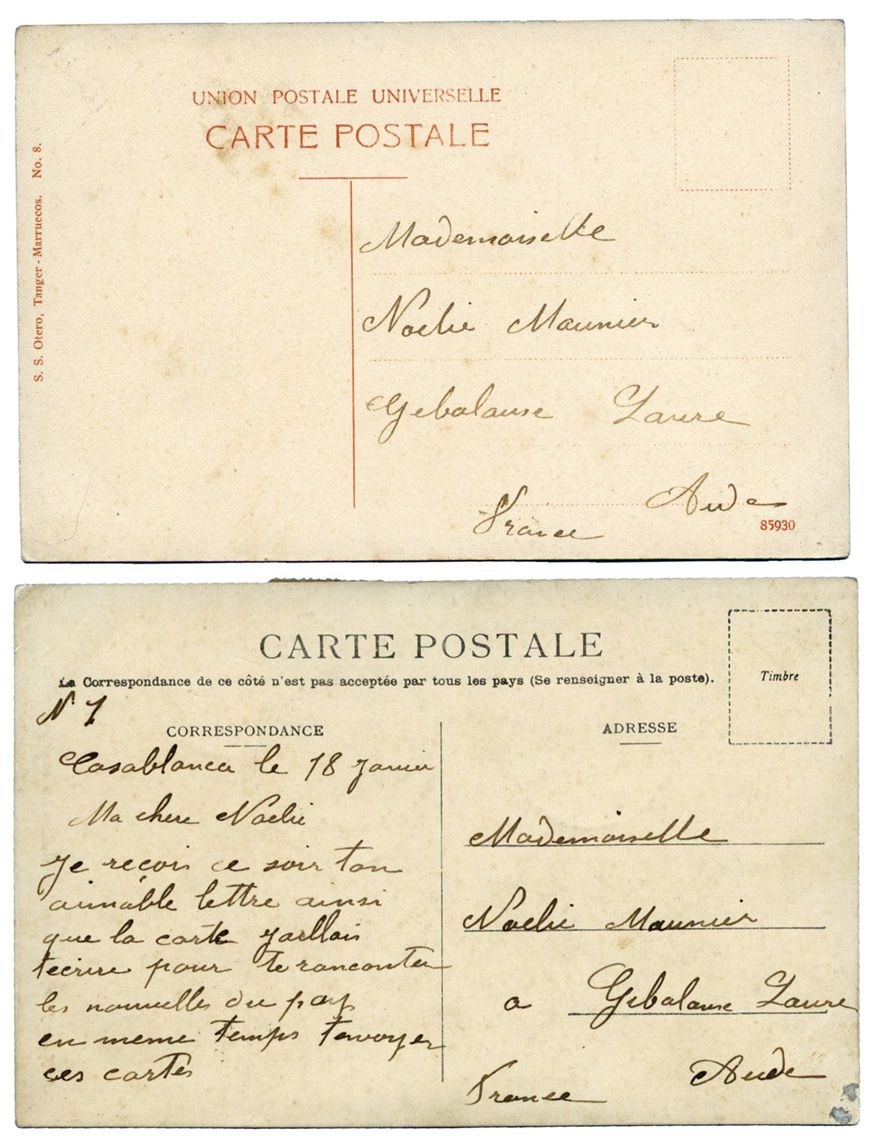 UNION POSTALE UNIVERSELLE
CARTE POSTALE
S. S. Otero, Tanger - Marruecos. No. 8.
Mademoiselle
Noelie Maunier
Gebalause Laure
Aude
France
85930
CARTE POSTALE
La Correspondance de ce côté n'est pas acceptée par tous les pays (Se renseigner à la poste).
Timbre
N 1
CORRESPONDANCE
Casablanca le 18 Janvier
Ma chere Noelie
Je recois ce soir ton
aimable lettre ainsi
que la carte jallais
tecrire pour te raconter
les nouvelles du pays
en meme temps tenvoyer
ces cartes
ADRESSE
Mademoiselle
Noelie Maunier
a Gebalause Laure
Aude
France